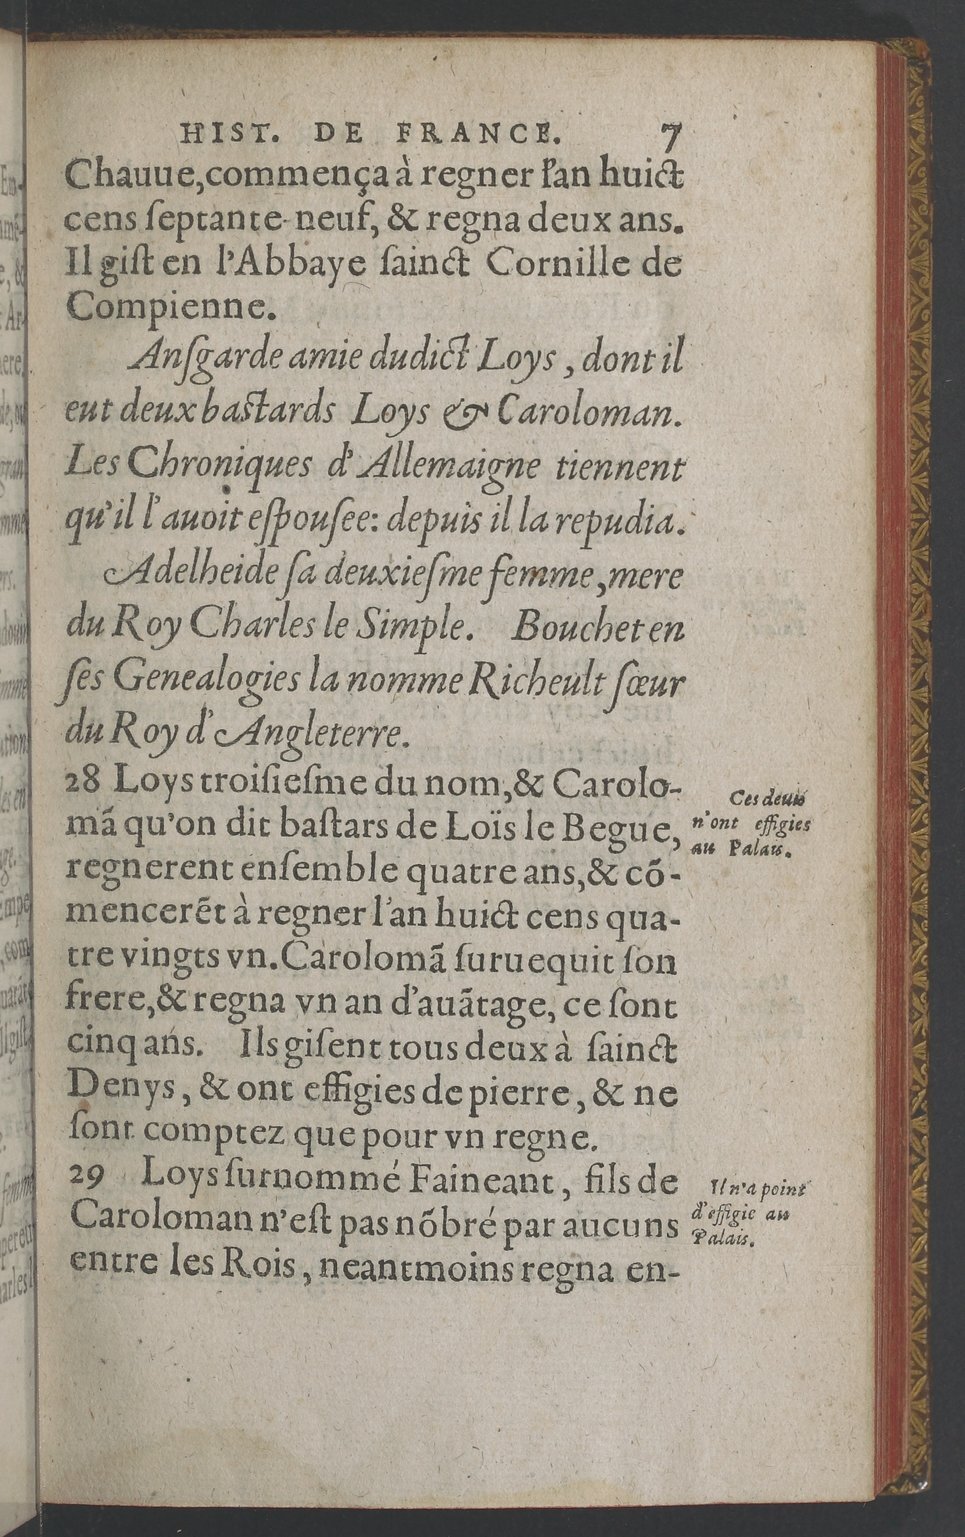 HIST. DE FRANCE. 7
Chauue,commença à regner l'an huict
cens ſeptante-neuf, & regna deux ans.
Il giſt en l'Abbaye ſainct Cornille de
Compienne.
Anſgarde amie dudict Loys, dont il
eut deux baſtards Loys & Caroloman.
Les Chroniques d'Allemaigne tiennent
qu'il l'auoit eſpouſee: depuis il la repudia.
Adelheide ſa deuxieſme femme,mere
du Roy Charles le Simple. Bouchet en
ſes Genealogies la nomme Richeult ſœur
du Roy d'Angleterre.
28 Loys troiſieſme du nom,& Carolo-
mã qu'on dit baſtars de Loïs le Begue,
regnerent enſemble quatre ans,& cõ-
mencerẽt à regner l'an huict cens qua-
tre vingts vn. Carolomã ſuruequit ſon
frere,& regna vn an d'auãtage, ce ſont
cinq ans. Ils giſent tous deux à ſainct
Denys, & ont effigies de pierre, & ne
ſont comptez que pour vn regne.
29 Loys ſurnommé Faineant, fils de
Caroloman n'eſt pas nõbré par aucuns
entre les Rois, neantmoins regna en-
Ces deux
n'ont effigies
au Palais.
Il n'a point
d'effigie au
Palais.